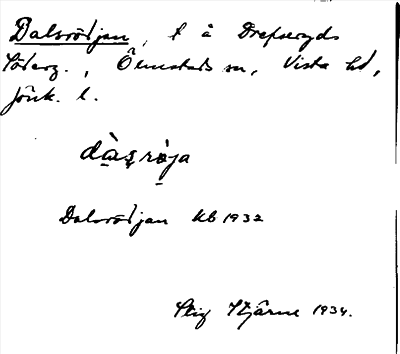 Dalsrödjan, t å Drefseryds
Söderg., Ölmstads sn, Vista hd,
Jönk. l.
dàs̨rö̀ja
Dalsrödjan kb 1932
Stig Stjärne 1934.